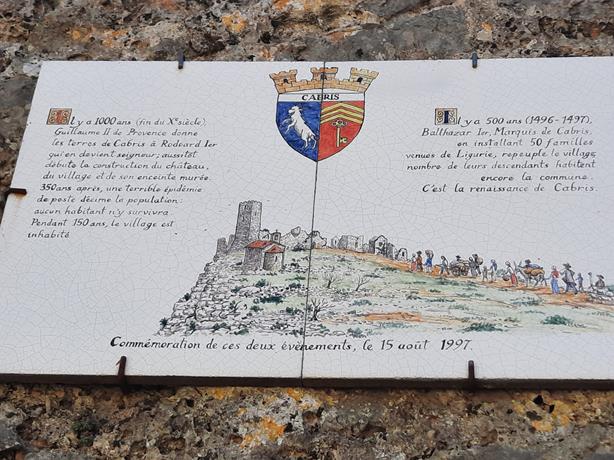 Il y a 1000 ans (fin du Xe siècle),
Guillaume II de Provence donne
les terres de Cabris à Rodeard Ier
qui en devient seigneur; aussitôt
débute la construction du château,
du village et de son enceinte murée.
350 ans après, une terrible épidémie
de peste décime la population:
aucun habitant n'y survivra.
Pendant 150 ans, le village est
inhabité
CABRIS
Il y a 500 ans (1496-1497),
Balthazar Ier, Marquis de Cabris,
en installant 50 familles
venues de Ligurie, repeuple le village
nombre de leurs descendants habitent
encore la commune.
C'est la renaissance de Cabris.
Commémoration de ces deux évènements, le 15 août 1997.